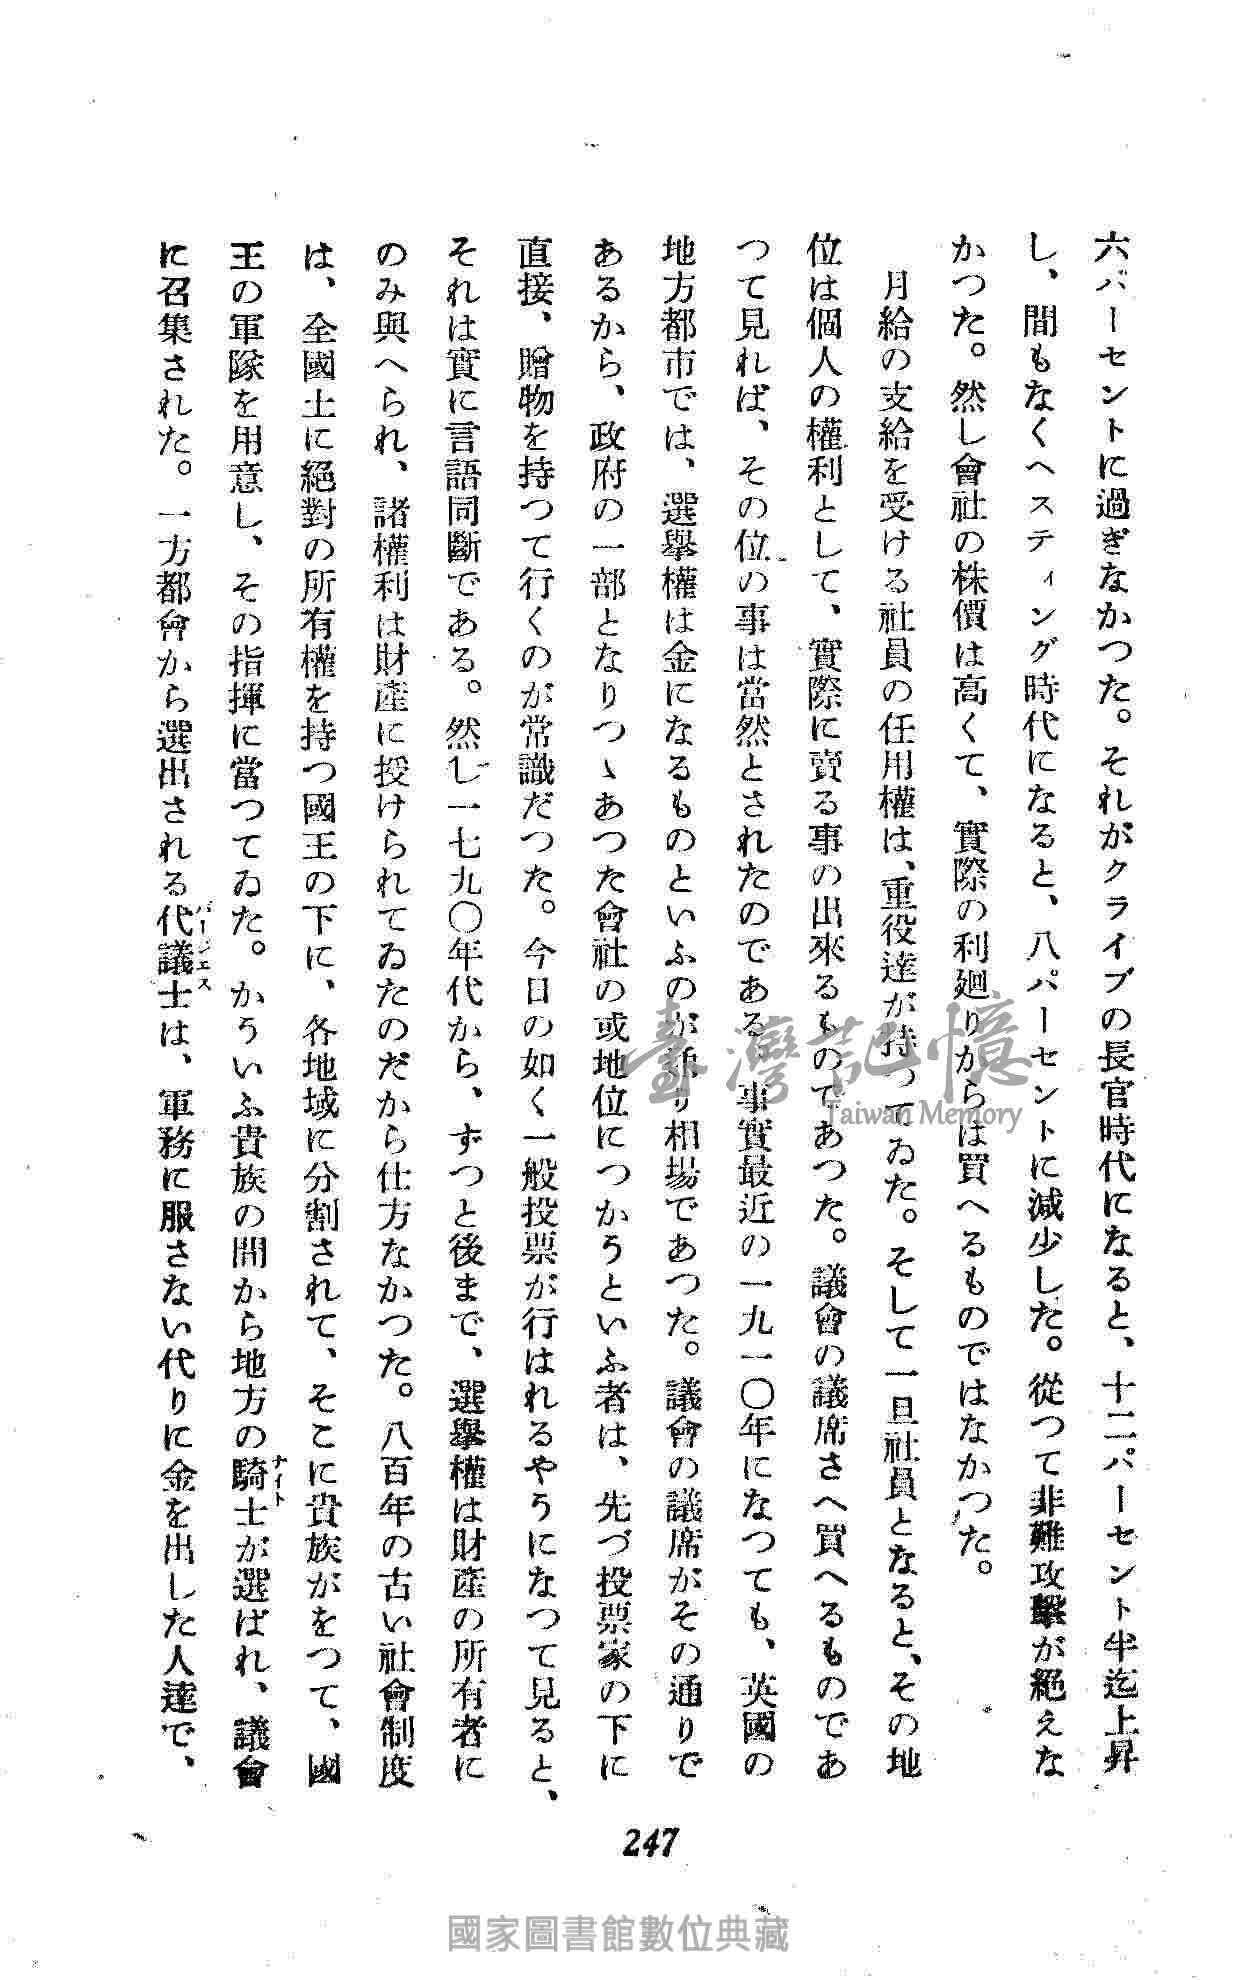 六パーセントに過ぎなかつた。それがクライブの長官時代になると、十二パーセント半迄上昇
し、間もなくヘスティング時代になると、八パーセントに減少した。從つて非難攻擊が絕えな
かつた。然し會社の株價は高くて、實際の利廻りからは買へるものではなかつた。
月給の支給を受ける社員の任用權は、重役達が持つてゐた。そして一旦社員となると、その地
位は個人の權利として、實際に賣る事の出來るものであつた。議會の議席さへ買へるものであ
つて見れば、その位の事は當然とされたのである。事實最近の一九一〇年になつても、英國の
地方都市では、選擧權は金になるものといふのが通り相場であつた。議會の議席がその通りで
あるから、政府の一部となりつゝあつた會社の或地位につかうといふ者は、先づ投票家の下に
直接、贈物を持つて行くのが常識だつた。今日の如く一般投票が行はれるやうになつて見ると、
それは實に言語同斷である。然し一七九〇年代から、ずつと後まで、選擧權は財產の所有者に
のみ與へられ、諸權利は財產に授けられてゐたのだから仕方なかつた。八百年の古い社會制度
は、全國土に絕對の所有權を持つ國王の下に、各地域に分割されて、そこに貴族がをつて、國
王の軍隊を用意し、その指揮に當つてゐた。かういふ貴族の間から地方の騎士が選ばれ、議會
ナイト
に召集された。一方都會から選出される代議士は、軍務に服さない代りに金を出した人達で、
バージェス
247
臺灣記憶
Taiwan Memory
國家圖書館數位典藏